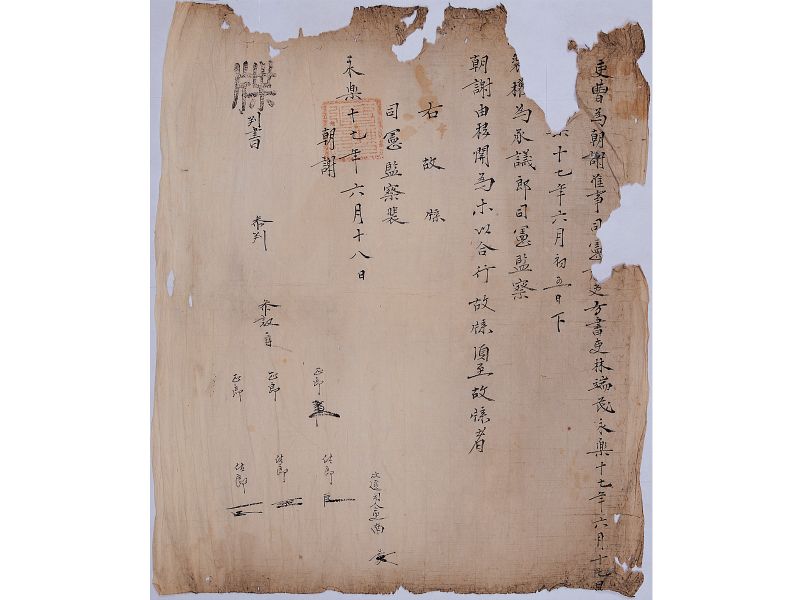 吏曹為朝謝准事司憲 吏方書吏林端茂永樂十七年六月十 日
十七年六月初五日下
裴權為承議郎司憲監察
朝謝由移關為等以合行故牒須至故牒者
右故牒
司憲監察裴
朝謝
永樂十七年六月十八日
牒
判書
參判
參議
正郎
正郎
正郎
佐郎
佐郎
佐郎